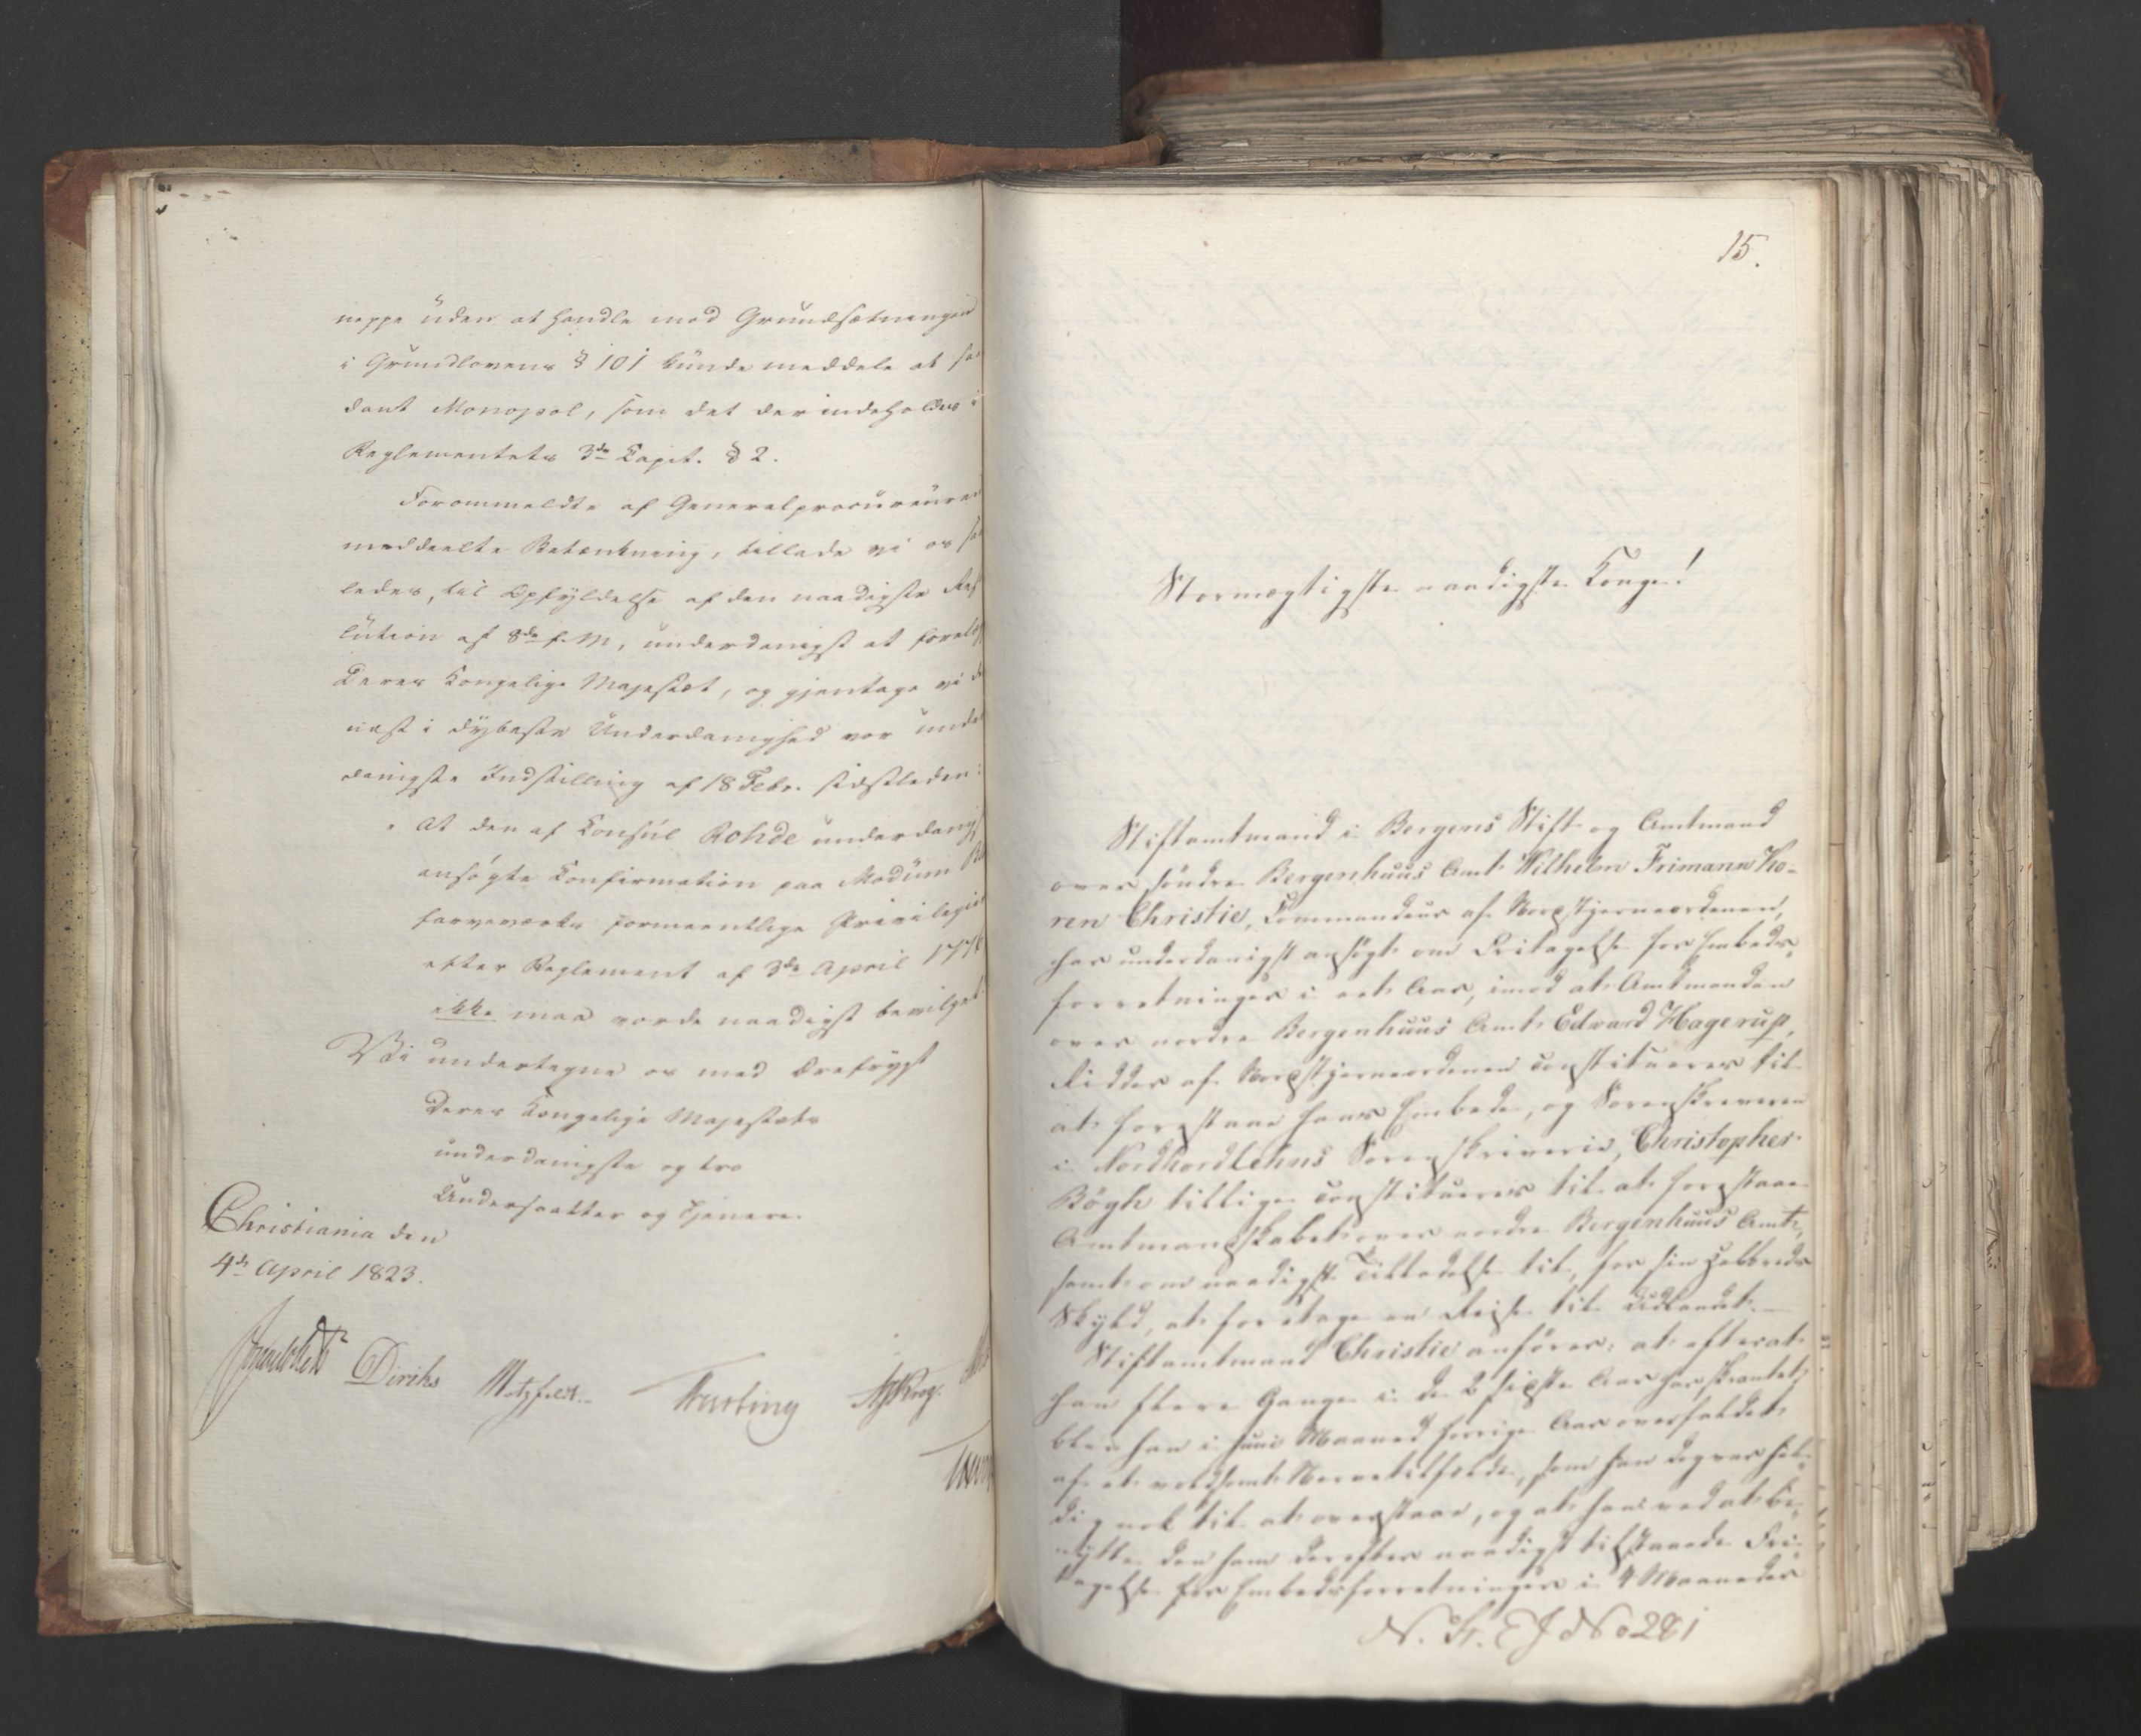 neppe uden at handle mod Grundsætningen
i Grundlovens § 101 kunde meddele et saa
dant Monopol, som det der indeholdes i
Reglementets 3de Capit. § 2.
Forommeldte af Generalprocureuren
meddeelte Betænkning, tillade vi os saa
ledes, til Opfyldelse af den naadigste Reso
lution af 8de f. M, underdanigst at forelæg
Deres Kongelige Majestæt, og gjentage vi der
næst i dybeste Underdanighed vor under
danigste Indstilling af 18 Febr. sidstleden:
"At den af Consul Rohde underdanigst
ansøgte Confirmation paa Modum Bl
farveværks formeentlige Privilegier
efter Reglement af 3de April 1776
ikke maa vorde naadigst bevilget.
Vi undertegne os med Ærefrygt
Deres Kongelige Majestæts
underdanigste og tro
Undersaatter og Tjenere
Christiania den
4de April 1823.
Diriks Motzfeldt Treschow Krog
15.
Stormægtigste naadigste Konge!
Stiftamtmand i Bergens Stift og Amtmand
over søndre Bergenhuus Amt Wilhelm Frimann Ko-
ren Christie, Commandeur af Nordstjerneordenen,
har underdanigst ansøgt om Fritagelse for Embeds-
forretninger i eet Aar, imod at Amtmanden
over nordre Bergenhuus Amt Edvard Hagerup,
Ridder af Nordstjerneordenen constitueres til
at forestaae hans Embede, og Sorenskriveren
i Nordhordlehns Sorenskriverie, Christopher
Bøgh tillige constitueres til at forestaae
Amtmandskabet over nordre Bergenhuus Amt,
samt om naadigst Tilladelse til, for sin Helbreds
Skyld, at foretage en Reise til Udlandet.
Stiftamtmand Christie anfører: at efterat
han flere Gange i de 2 sidste Aar har skrantet,
blev han i Juni Maaned forrige Aar overfaldet
af et voldsomt Nervetilfælde, som han dog var hel-
dig nok til at overstaae, og at han ved at be-
nytte den ham derefter naadigst tilstaaede Fri-
tagelse for Embedsforretninger i 4 Maaneder
N. St. E J No 281